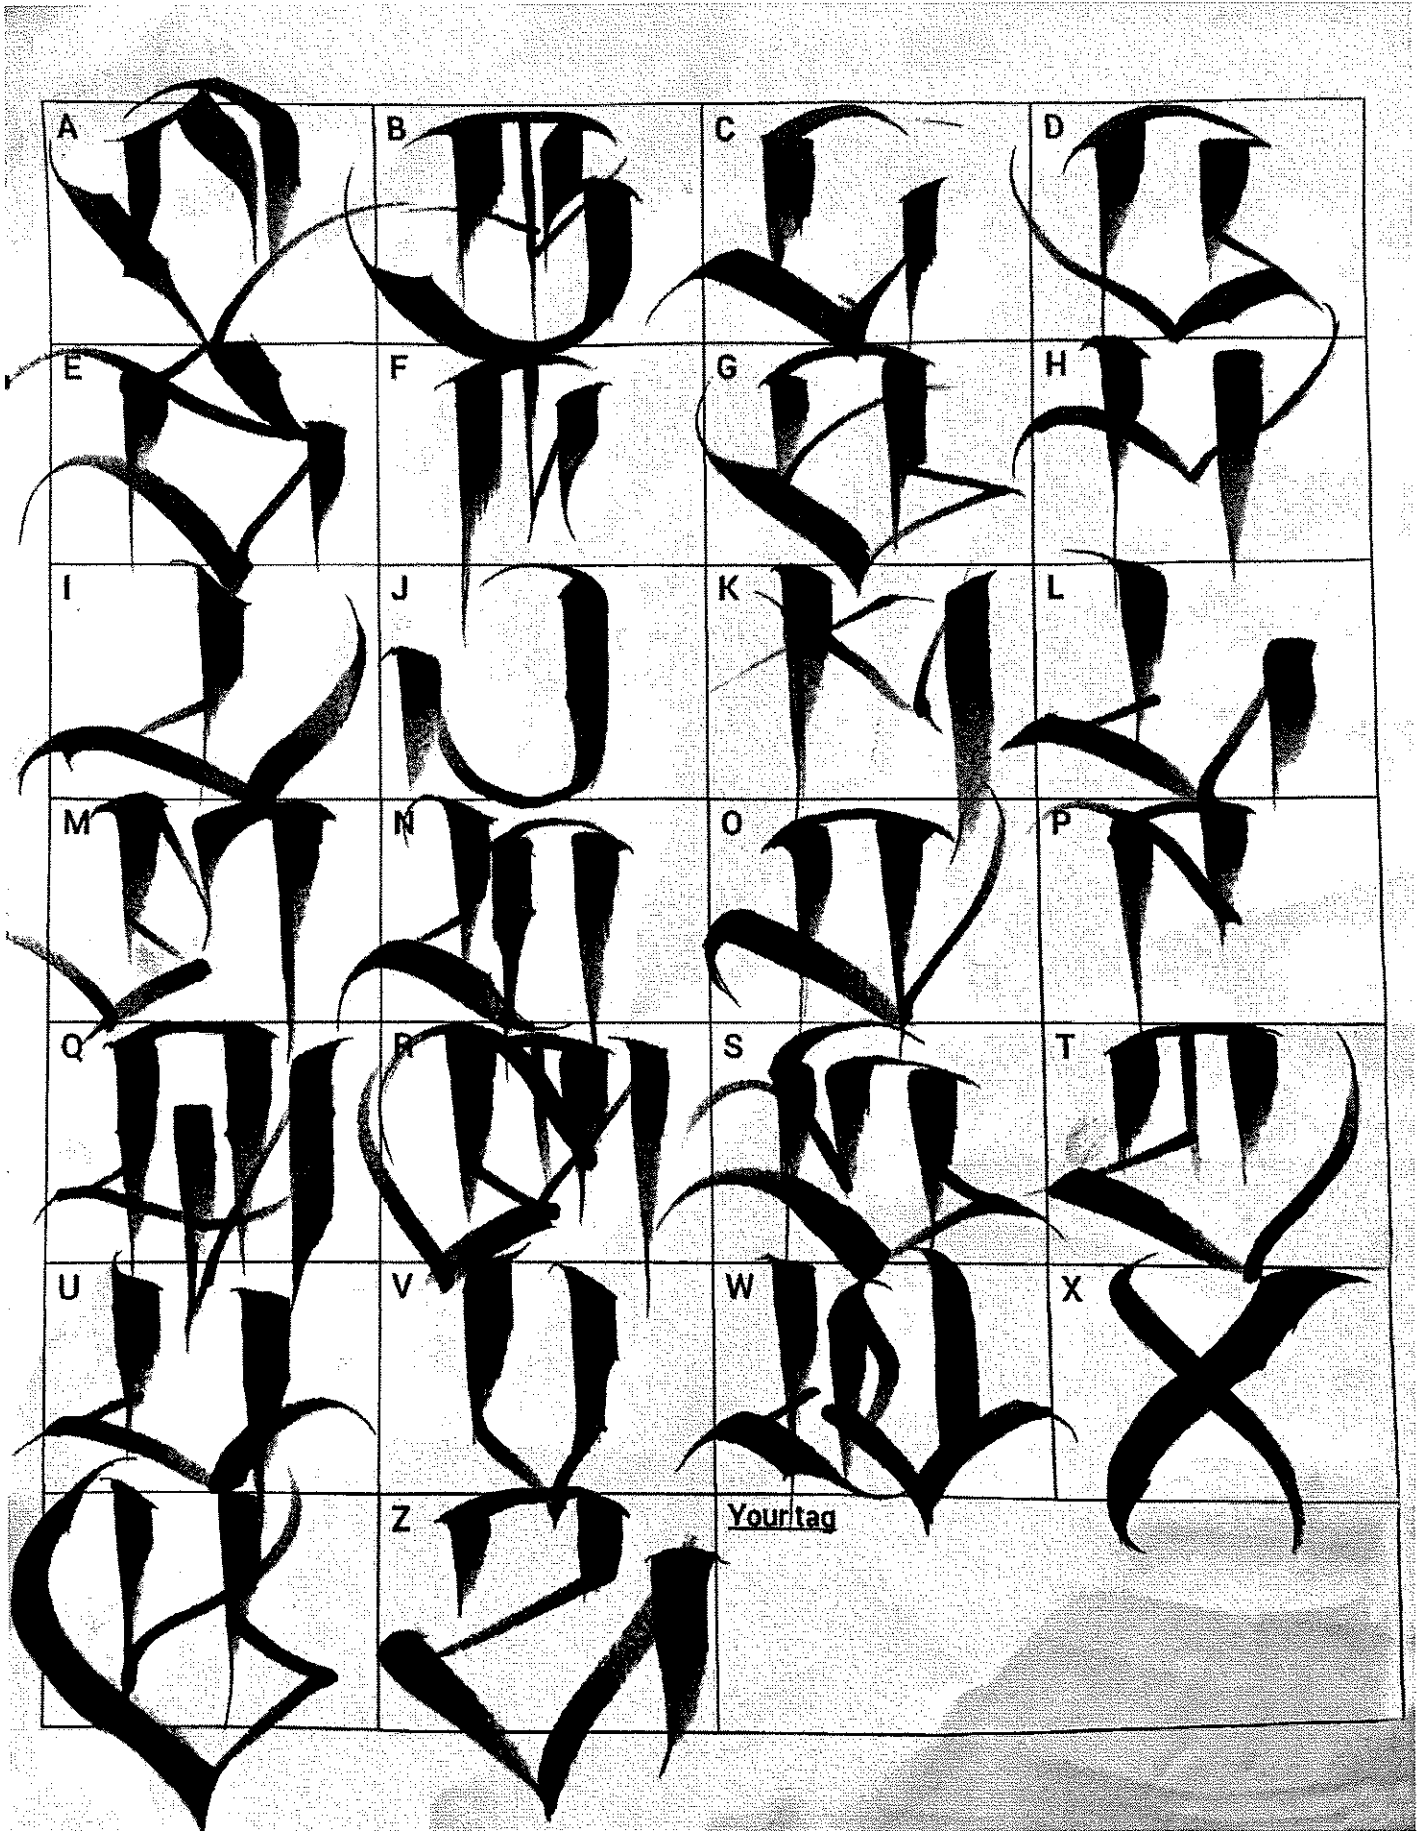 A B C D
E F G H
I J K L
M N O P
Q R S T
U V W X
Z Your tag